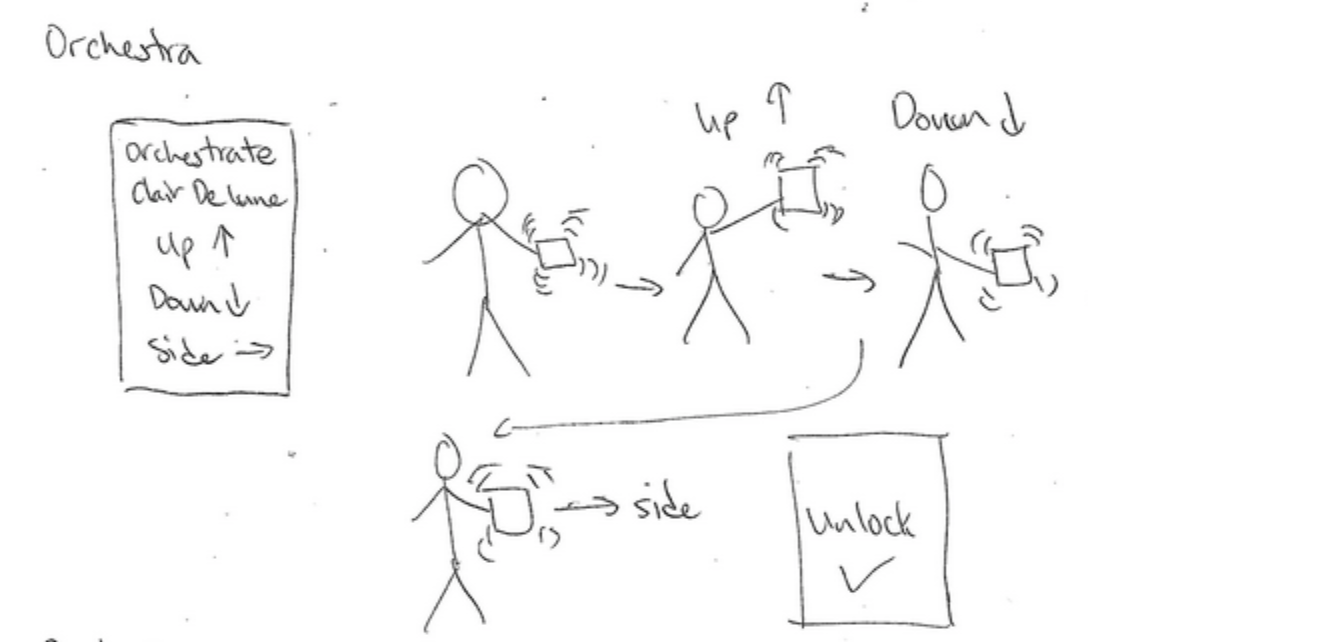 Orchestra
Orchestrate
Clair De lune
Up ↑
Down ↓
Side →
Up ↑
Down ↓
→ side
Unlock
✓